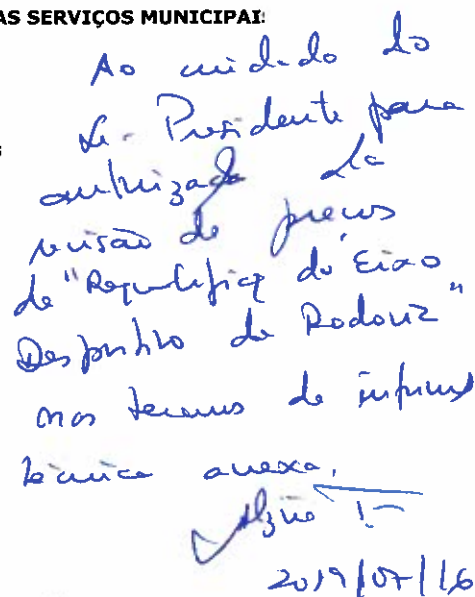 AS SERVIÇOS MUNICIPAI
Ao cuidado do
Sr. Presidente para
autorização da
revisão de preços
de "Requalificaç do Eixo
Desportivo de Rodoviz"
nos termos da inform
técnica anexa.
2019/07/16